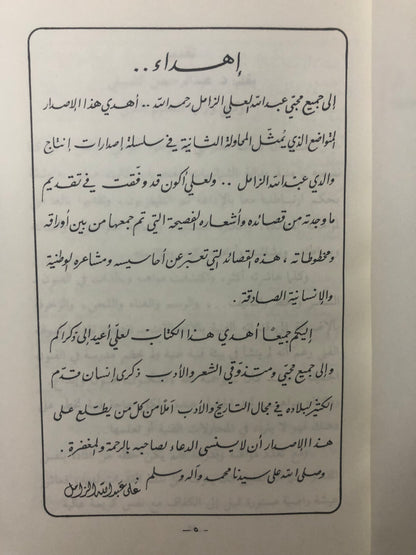 إهداء ..
إلى جميع محبّي عبدالله العلي الزامل رحمه الله .. أهدي هذا الإصدار
المتواضع الذي يُمثّل المحاولة الثانية في سلسلة إصدارات إنتاج
والدي عبدالله الزامل .. ولعلي أكون قد وفّقت في تقديم
ما وجدته من قصائده وأشعاره الفصيحة التي تم جمعها من بين أوراقه
ومخطوطاته ، هذه القصائد التي تعبّر عن أحاسيسه ومشاعره الوطنية
والإنسانية الصادقة .
إليكم جميعًا أهدي هذا الكتاب لعلّي أعيد إلى ذكراكم
وإلى جميع محبّي ومتذوقي الشعر والأدب ذكرى إنسان قدّم
الكثير لبلاده في مجال التاريخ والأدب آملًا من كل من يطّلع على
هذا الإصدار أن لا ينسى الدعاء لصاحبه بالرحمة والمغفرة .
وصلى الله على سيدنا محمد وآله وسلم
علي عبدالله الزامل
— ٥ —